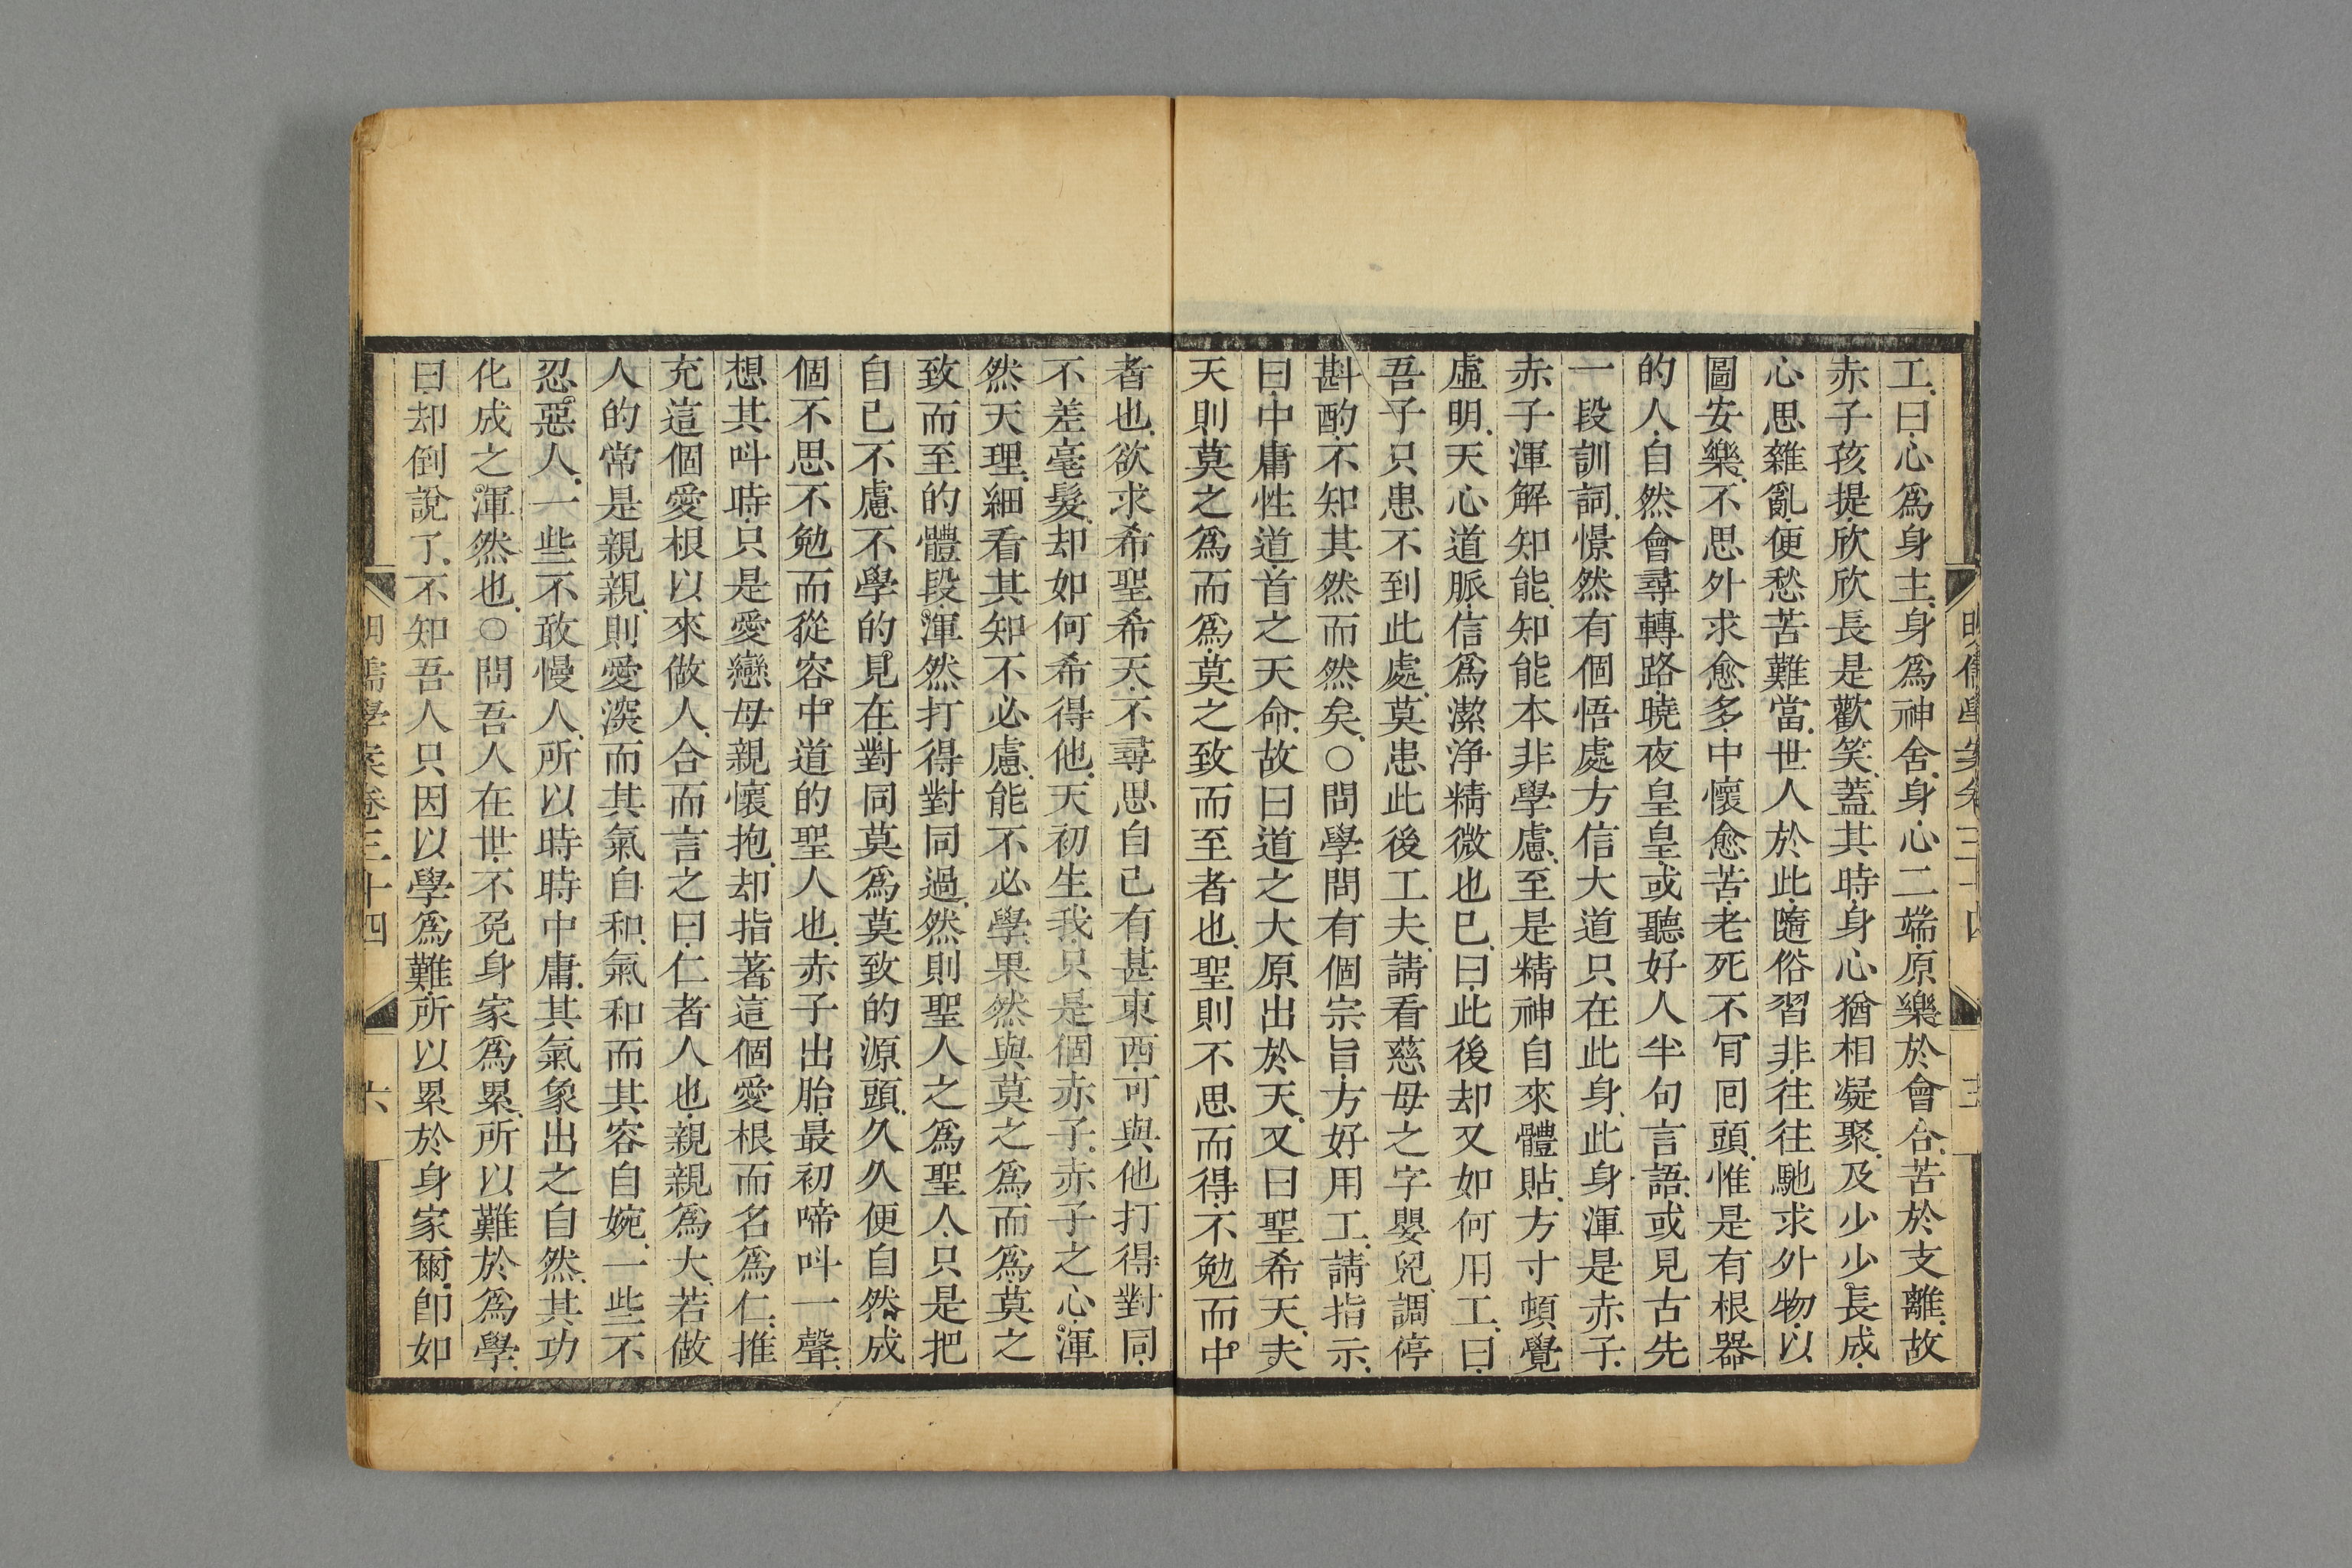 工曰心爲身主身爲神舍身心二端原樂於會合苦於支離故
赤子孩提欣欣長是歡笑蓋其時身心猶相凝聚及少少長成
心思雜亂便愁苦難當世人於此隨俗習非往往馳求外物以
圖安樂不思外求愈多中懷愈苦老死不肯囘頭惟是有根器
的人自然會尋轉路曉夜皇皇或聽好人半句言語或見古先
一段訓詞憬然有個悟處方信大道只在此身此身渾是赤子
赤子渾解知能知能本非學慮至是精神自來體貼方寸頓覺
虛明天心道脈信爲潔淨精微也已曰此後却又如何用工曰
吾子只患不到此處莫患此後工夫請看慈母之字嬰兒調停
斟酌不知其然而然矣○問學問有個宗旨方好用工請指示
曰中庸性道首之天命故曰道之大原出於天又曰聖希天夫
天則莫之爲而爲莫之致而至者也聖則不思而得不勉而中
者也欲求希聖希天不尋思自己有甚東西可與他打得對同
不差毫髮却如何希得他天初生我只是個赤子赤子之心渾
然天理細看其知不必慮能不必學果然與莫之爲而爲莫之
致而至的體段渾然打得對同過然則聖人之爲聖人只是把
自己不慮不學的見在對同莫爲莫致的源頭久久便自然成
個不思不勉而從容中道的聖人也赤子出胎最初啼叫一聲
想其叫時只是愛戀母親懷抱却指著這個愛根而名爲仁推
充這個愛根以來做人合而言之曰仁者人也親親爲大若做
人的常是親親則愛深而其氣自和氣和而其容自婉一些不
忍惡人一些不敢慢人所以時時中庸其氣象出之自然其功
化成之渾然也○問吾人在世不免身家爲累所以難於爲學
曰却倒說了不知吾人只因以學爲難所以累於身家爾即如
明儒學案卷三十四 六